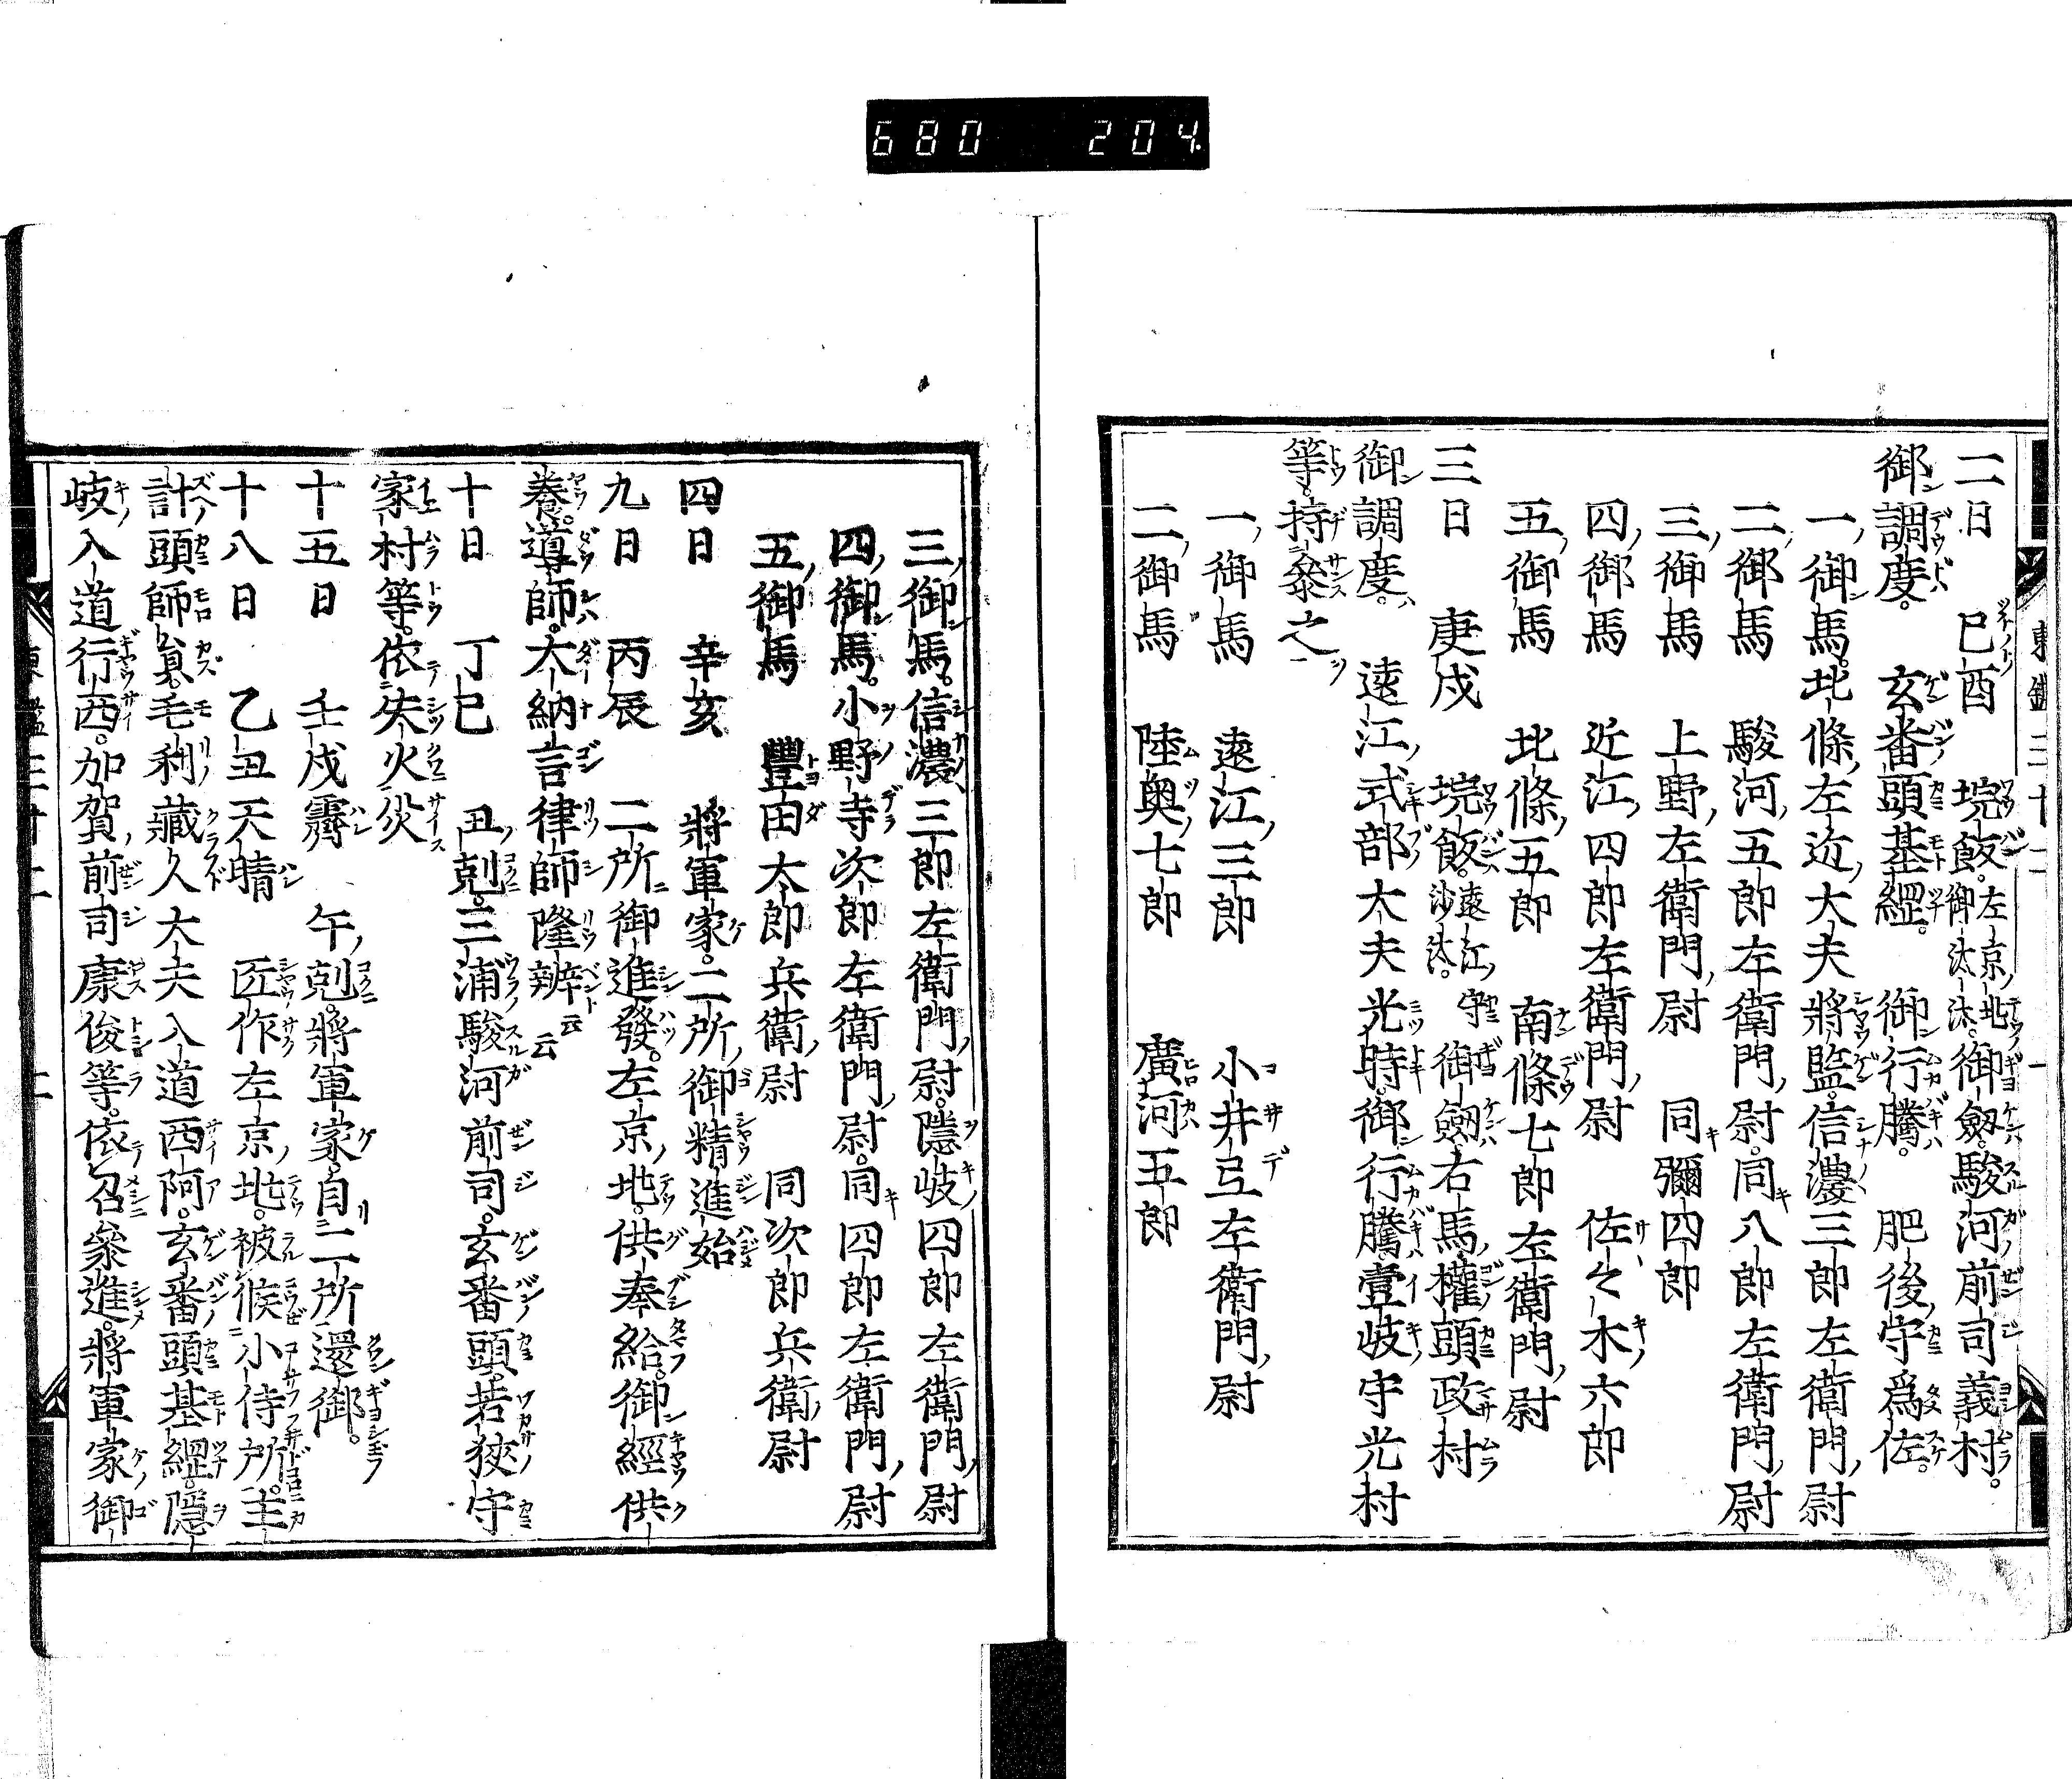 680 204
二日 巳酉 垸飯。左京北御沙汰。御劔。駿河前司義村。
御調度。 玄番頭基綱。 御行騰。 肥後守爲佐。
一御馬。北條左近大夫將監。信濃三郎左衛門尉
二御馬 駿河五郎左衛門尉。同八郎左衛門尉
三御馬 上野左衛門尉 同彌四郎
四御馬 近江四郎左衛門尉 佐々木六郎
五御馬 北條五郎 南條七郎左衛門尉
三日 庚戌 垸飯。遠江守沙汰。御劔右馬權頭政村
御調度。 遠江式部大夫光時。御行騰壹岐守光村
等。持參之
一御馬 遠江三郎 小井弖左衛門尉
二御馬 陸奥七郎 廣河五郎
三御馬。信濃三郎左衛門尉。隱岐四郎左衛門尉
四御馬。小野寺次郎左衛門尉。同四郎左衛門尉
五御馬 豐田太郎兵衛尉 同次郎兵衛尉
四日 辛亥 將軍家。二所御精進始
九日 丙辰 二所御進發。左京地。供奉給。御經供
養。導師。大納言律師隆辨云云
十日 丁巳 丑剋。三浦駿河前司。玄番頭。若狹守
家村等。依失火災
十五日 壬戌霽 午剋。將軍家自二所還御。
十八日 乙丑天晴 匠作左京地。被候小侍所。主
計頭師員。毛利藏人大夫入道西阿。玄番頭基綱。隱
岐入道行西。加賀前司康俊等。依召參進。將軍家御